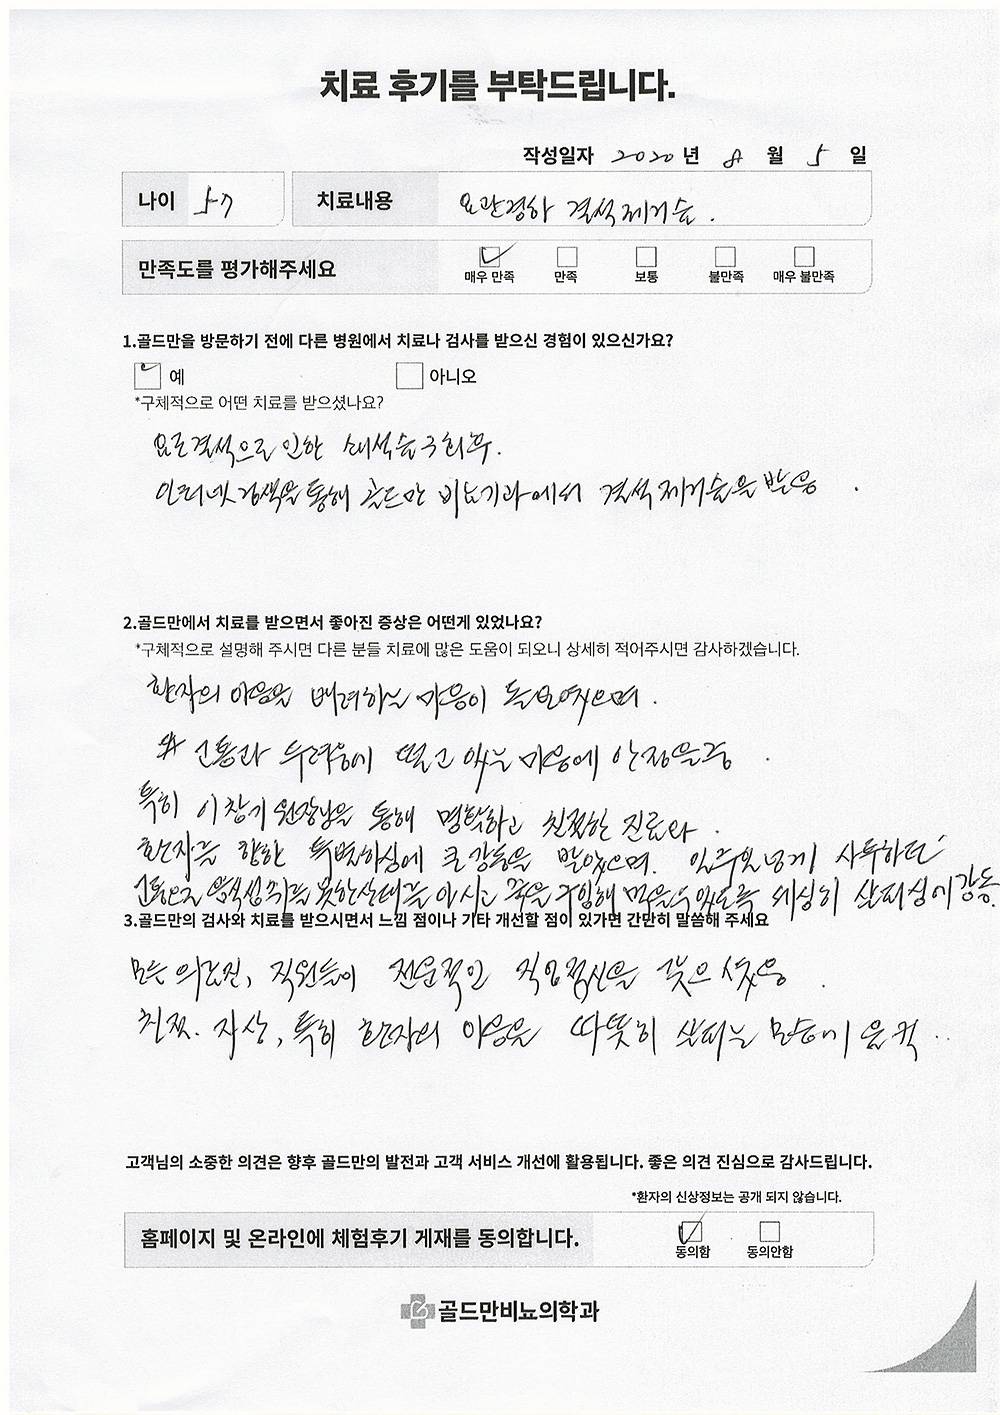 치료 후기를 부탁드립니다.
작성일자 2020년 8월 5일
나이 57 치료내용 요관경하 결석제거술.
만족도를 평가해주세요 매우 만족 만족 보통 불만족 매우 불만족
1.골드만을 방문하기 전에 다른 병원에서 치료나 검사를 받으신 경험이 있으신가요?
예 아니오
*구체적으로 어떤 치료를 받으셨나요?
요로결석으로 인한 쇄석술 3회후.
인터넷 검색을 통해 골드만 비뇨기과에서 결석제거술을 받음.
2.골드만에서 치료를 받으면서 좋아진 증상은 어떤게 있었나요?
*구체적으로 설명해 주시면 다른 분들 치료에 많은 도움이 되오니 상세히 적어주시면 감사하겠습니다.
환자의 마음을 배려하는 마음이 돋보였으며.
고통과 두려움에 떨고 있는 마음에 안정을 줌.
특히 이창기 원장님을 통해 명탁하고 친절한 진료와.
환자를 향한 특별하심에 큰 감동을 받았으며. 일주일 넘게 사투하던
고통으로 음식섭취를 못한 상태를 아시고 죽을 구입해 먹을수있도록 세심히 살피심에 감동.
3.골드만의 검사와 치료를 받으시면서 느낌 점이나 기타 개선할 점이 있가면 간만히 말씀해 주세요
모든 의료진, 직원들이 전문적인 직업정신을 갖으셨음.
친절. 자상, 특히 환자의 마음을 따뜻히 살피는 모습에
고객님의 소중한 의견은 향후 골드만의 발전과 고객 서비스 개선에 활용됩니다. 좋은 의견 진심으로 감사드립니다.
*환자의 신상정보는 공개 되지 않습니다.
홈페이지 및 온라인에 체험후기 게재를 동의합니다. 동의함 동의안함
골드만비뇨의학과